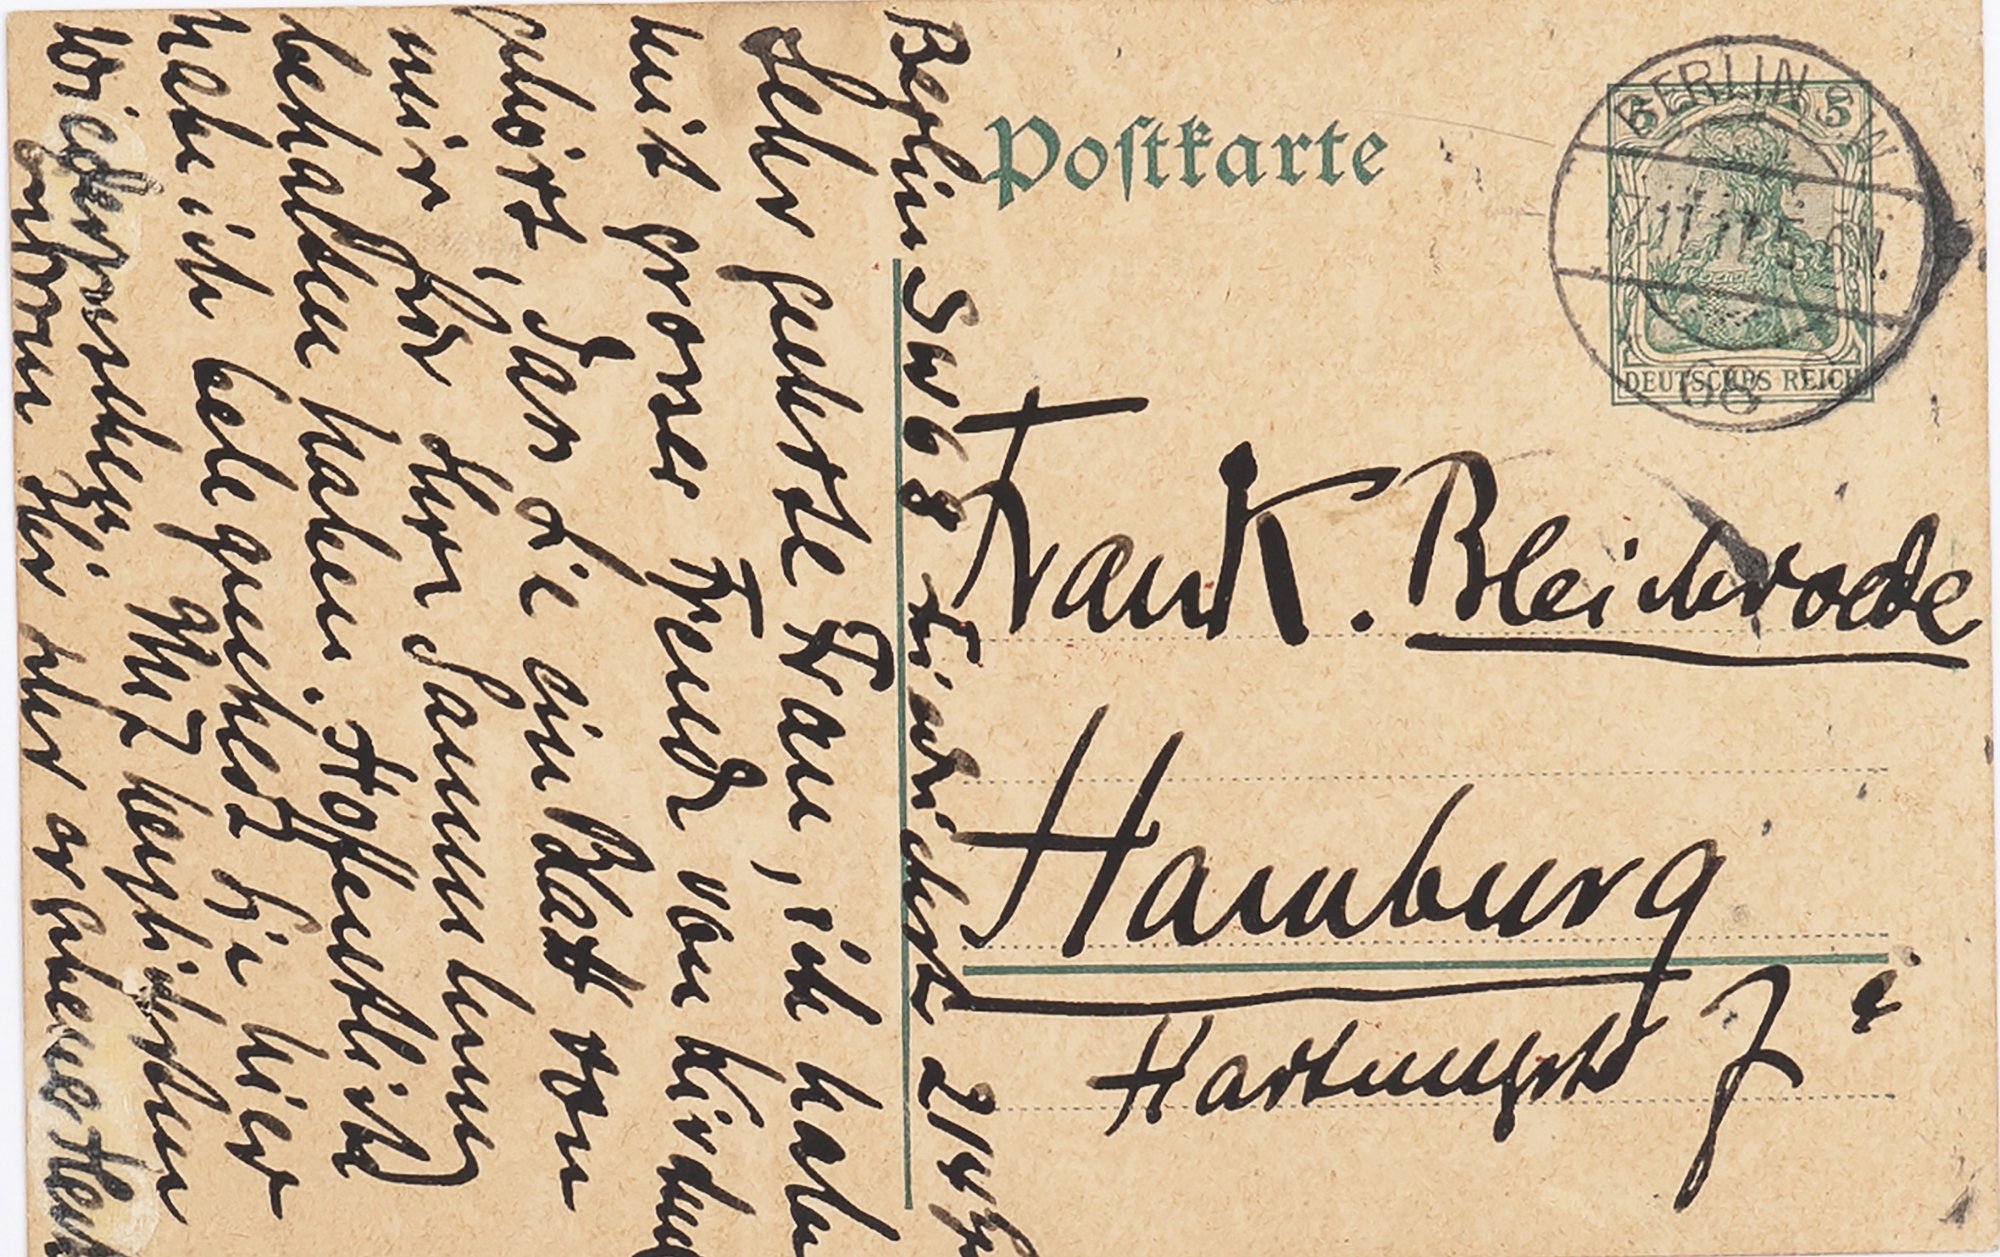 Postkarte
BERLIN SW
11.17.5
68
5 5
DEUTSCHES REICH
Frau K. Bleichrode
Hamburg
Hartungstr 7a
Berlin SW 68 Lindenstr 214
sehr geehrte Frau, ich habe
mit groser Freude von
gehört, das Sie ein Blatt von
mir für Ihre Sammlung
behalten haben. Hoffentlich
habe ich Gelegenheit Sie hier
Mit herzlichsten
Ihr sehr ergebener